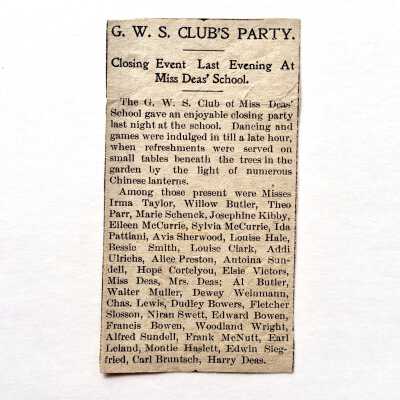 G. W. S. CLUB'S PARTY.
Closing Event Last Evening At
Miss Deas' School.
The G. W. S. Club of Miss Deas'
School gave an enjoyable closing party
last night at the school. Dancing and
games were indulged in till a late hour,
when refreshments were served on
small tables beneath the trees in the
garden by the light of numerous
Chinese lanterns.
Among those present were Misses
Irma Taylor, Willow Butler, Theo
Parr, Marie Schenck, Josephine Kibby,
Eileen McCurrie, Sylvia McCurrie, Ida
Pattiani, Avis Sherwood, Louise Hale,
Bessie Smith, Louise Clark, Addi
Ulrichs, Alice Preston, Antoina Sun-
dell, Hope Cortelyou, Elsie Victors,
Miss Deas, Mrs. Deas; Al Butler,
Walter Muller, Dewey Weinmann,
Chas. Lewis, Dudley Bowers, Fletcher
Slosson, Niran Swett, Edward Bowen,
Francis Bowen, Woodland Wright,
Alfred Sundell, Frank McNutt, Earl
Leland, Montie Haslett, Edwin Sieg-
fried, Carl Bruntsch, Harry Deas.